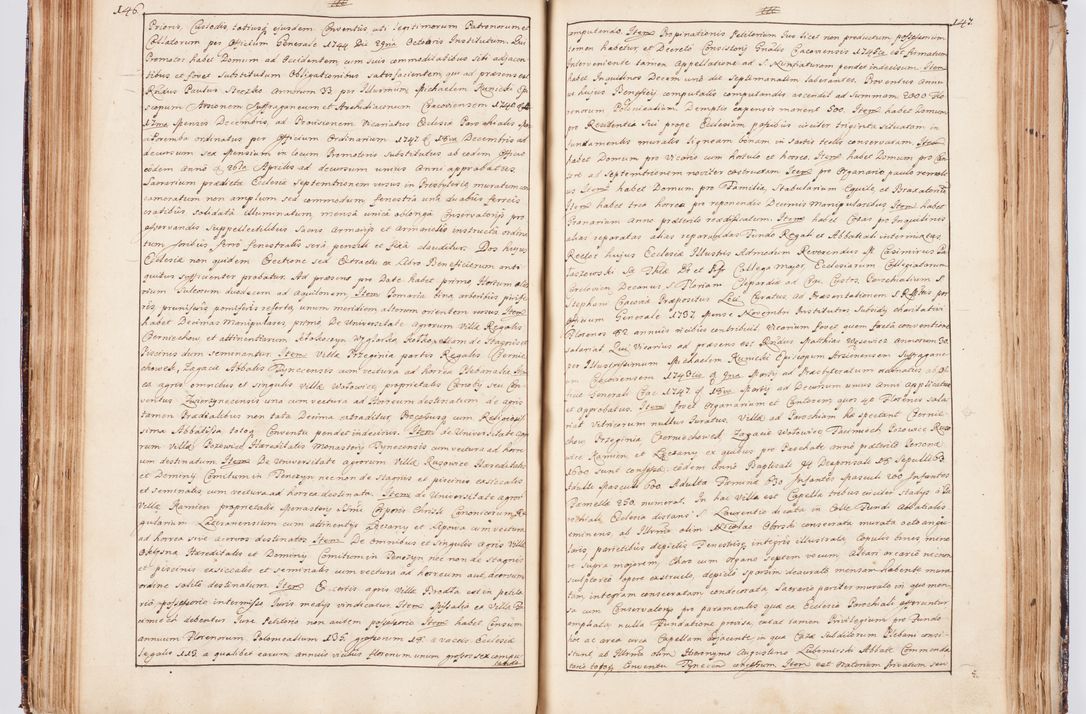 146.
Prioris, Custodis, totiusq ejusdem Conventus uti Legitimorum Patronorum et
Collatorum per Officium Generale 1744 Die 29na Octobris Institutum. Qui
Promotor habet Domum ad Occidentem cum suis commoditatibus sibi adjacen
tibus et fovet Substitutum Obligationibus satisfacientem, qui ad præsens est
Rndus Paulus Steczko Annorum 33 per Illrmum Michaelem Kunicki Epi
scopum Arsinensem Suffraganeum et Archidiaconum Cracoviensem 1740
17ma Mensis Decembris, ad Provisionem Vicariatus Ecclesiæ Paro
Poremba ordinatus per Officium Ordinarium 1747 18va Decembris ad
decursum sex Mensium in locum Promotoris Substitutus ab eodem Officio
eodem Anno 26ta Aprilis ad decursum unius Anni approbatus
Sanarium prædictæ Ecclesiæ Septemtrionem versus in Presbyterio muratum con
cameratum non amplum sed commodum fenestra una duabus ferreis
cratibus solidata illuminatum, mensa unica oblonga Conservatorijs pro
observandis Suppellectilibus Sacris Armarijs et Armariolis instructa ordina
tum foribus ferro fenestralis sera pensili et fixa clauditur. Dos hujus
Ecclesiæ non quidem Erectione sed Extractu ex Libro Beneficiorum anti
quitus sufficienter probatur. Ad præsens pro Dote habet primo Hortum ole
rum Sulcorum duodecim ad Aquilonem, Item Pomaria bina arboribus pirife
ris pruniferis pomiferis referta, unum meridiem alterum orientem versus Item
habet Decimas Manipulares primo De Universitate agrorum Villæ Regalis
Czernichow et attinentiarum
Piscinis dum seminantur Item Villæ Przeginia partis Regalis Czernie
chowek, Zagacie Abbatis Tynecensis cum vectura ad horrea Plebanalia Item
ex agris omnibus et singulis Villæ Wolowice proprietatis Cenobij seu Con
ventus Zwierzynecensis una cum vectura ad Horreum destinatum de agris
tamen Prædialibus non tota Decima extraditur Præcavusq cum Religiosis
sima Abbatissa totoq Conventu pendet indecisum Item de Universitate Agro
rum Villæ Pozowice Hæreditatis Monasterij Tynecensis cum vectura ad horre
um destinatum Item De Universitate agrorum Villæ Rusowice Hæreditatis
et Dominij Comitum in Tenczyn nec non de Stagnis et piscinis exiccatis
et seminatis cum vectura ad horrea destinata. Item de Universitate agror
Villæ Kamien proprietatis Monasterij Ssmi Corporis Christi Canonicorum Re
gularium Lateranensium cum attinentijs Lączany et Lipowa cum vectura
ad horrea sive acervos destinatos Item De Omnibus et Singulis Agris Villæ
Okleśna Hæreditatis et Dominij Comitum in Tenczyn nec non de stagnis
et piscinis exsiccatis et seminatis cum vectura ad horreum aut acervum
ordine solito destinatum. Item Ex certis agris Villæ Brodła est in petito
rio possessorio intermisso Juris medijs vindicatus. Item Missalia ex Villa Po
rembæ debentur Jure Petitorio non autem possessorio Item habet Censum
annuum Florenorum Polonicalium 135 grossorum 18 a Vaccis Ecclesiæ
legatis 113 a qualibet earum annuis vicibus florenum unum grossos sex compu
tando.
147.
computando. Item Propinationis Petitorium Jus licet non productum, possessorium
tamen habetur et Decreto Consistorij Gnalis Cracoviensis 1746to est firmatum
Interveniente tamen Appellatione ad S. Nuntiaturam pendet indecisum. Item
habet Inquilinos Decem una die Septimanatim laborantes. Proventus Annu
us hujus Beneficij computatis computandis ascendit ad Summam 2000 Flo
renorum Polonicalium Demptis expensis manent 500. Item habet Domum
pro Residentia Sui prope Ecclesiam passibus circiter triginta situatam in
fundamentis muratis ligneam bonam in sartis tectis conservatam. Item
habet Domum pro Vicario cum hortulo et horreo. Item habet Domum pro Can
tore ad Septemtrionem noviter extructam Item pro Organario paulo remoti
us Item habet Domum pro Familia, Stabularium Equile, et Braxatoriū
Item habet tria horrea pro reponendis Decimis Manipularibus Item habet
Granarium Anno præterito reædificatum. Item habet Casas pro Inquilinis
alias reparatas alias reparandas Fundo Regali et Abbatiali intermixtas
Rector hujus Ecclesiæ Illustris Admodum Reverendus M Casimirus Pa
łaszowski Sæ Thlæ Dr et Pssr Collega major, Ecclesiarum Collegiatarum
Crelovien. Decanus S. Floriani Clepardiæ ad Crac. Custos, Parochialium S.
Stephani Cracoviæ Præpositus Loci Curatus ad Præsentationem S. R. Mttis per
Officium Generale 1737 Mense Novembri Institutus Subsidij charitativi
Florenos 82 annuis vicibus contribuit. Vicarium fovet quem facta conventione
salariat. Qui Vicarius ad præsens est Rndus Matthias Wysewicz Annorum 30.
per Illustrissimum Michaelem Kunicki Episcopum Arsinensem Suffragane
um Cracoviensem 1743tio 9na Martij ad Præsbyteratum ordinatus ab Of
ficio Generali Crac 1747 18va Martij ad Decursum unius Anni applicatus
et approbatus. Item fovet Organarium et Cantorem quos 40 Florenis sala
riat Vitricorum nullus Curatus. Villæ ad Parochiam hæ spectant Czernie
chow, Przeginia Czerniechowek Zagacie Wolowice Facimiech Pozowice Ruso
cice Kamien et Lączany ex quibus pro Paschate anno præterito Personæ
1600 sunt confessæ. eodem Anno Baptisati 94 Desponsati 28 Sepulti 63
Adulti Masculi 600. Adultæ Feminæ 630 Infantes Masculi 200 Infantes
Femellæ 230. numerat. In hac Villa est Capella tribus circiter stadijs a Pa
rochiali Ecclesia distans S. Laurentio dicata in Colle Fundi Abbatialis
eminens, ab Illrmo olim Nicolao Oborski consecrata murata octo angu
laris parietibus depictis Fenestris integris illustrata, Copulis binis, mino
re supra majorem, Choro cum Organo Septem vocum Altari arcario nec non
sculptorio opere exstructo, depicto sparsim deaurato mensam habente mura
tam integram consecratam condecorata Sacrario pariter murato in quo men
sa cum Conservatorijs pro paramentis quæ ex Ecclesia Parochiali afferuntur
emphata nulla Fundatione provisa, extat tamen Privilegium pro Fundo
hoc ac area circa Capellam adjacente in qua Casæ Subditorum Plebani consi
stunt, ab Illrmo olim Hieronymo Augustino Lubomirski Abbate Commenda
tario totoq Conventu Tynecen concessum Item est Oratorium Privatum seu